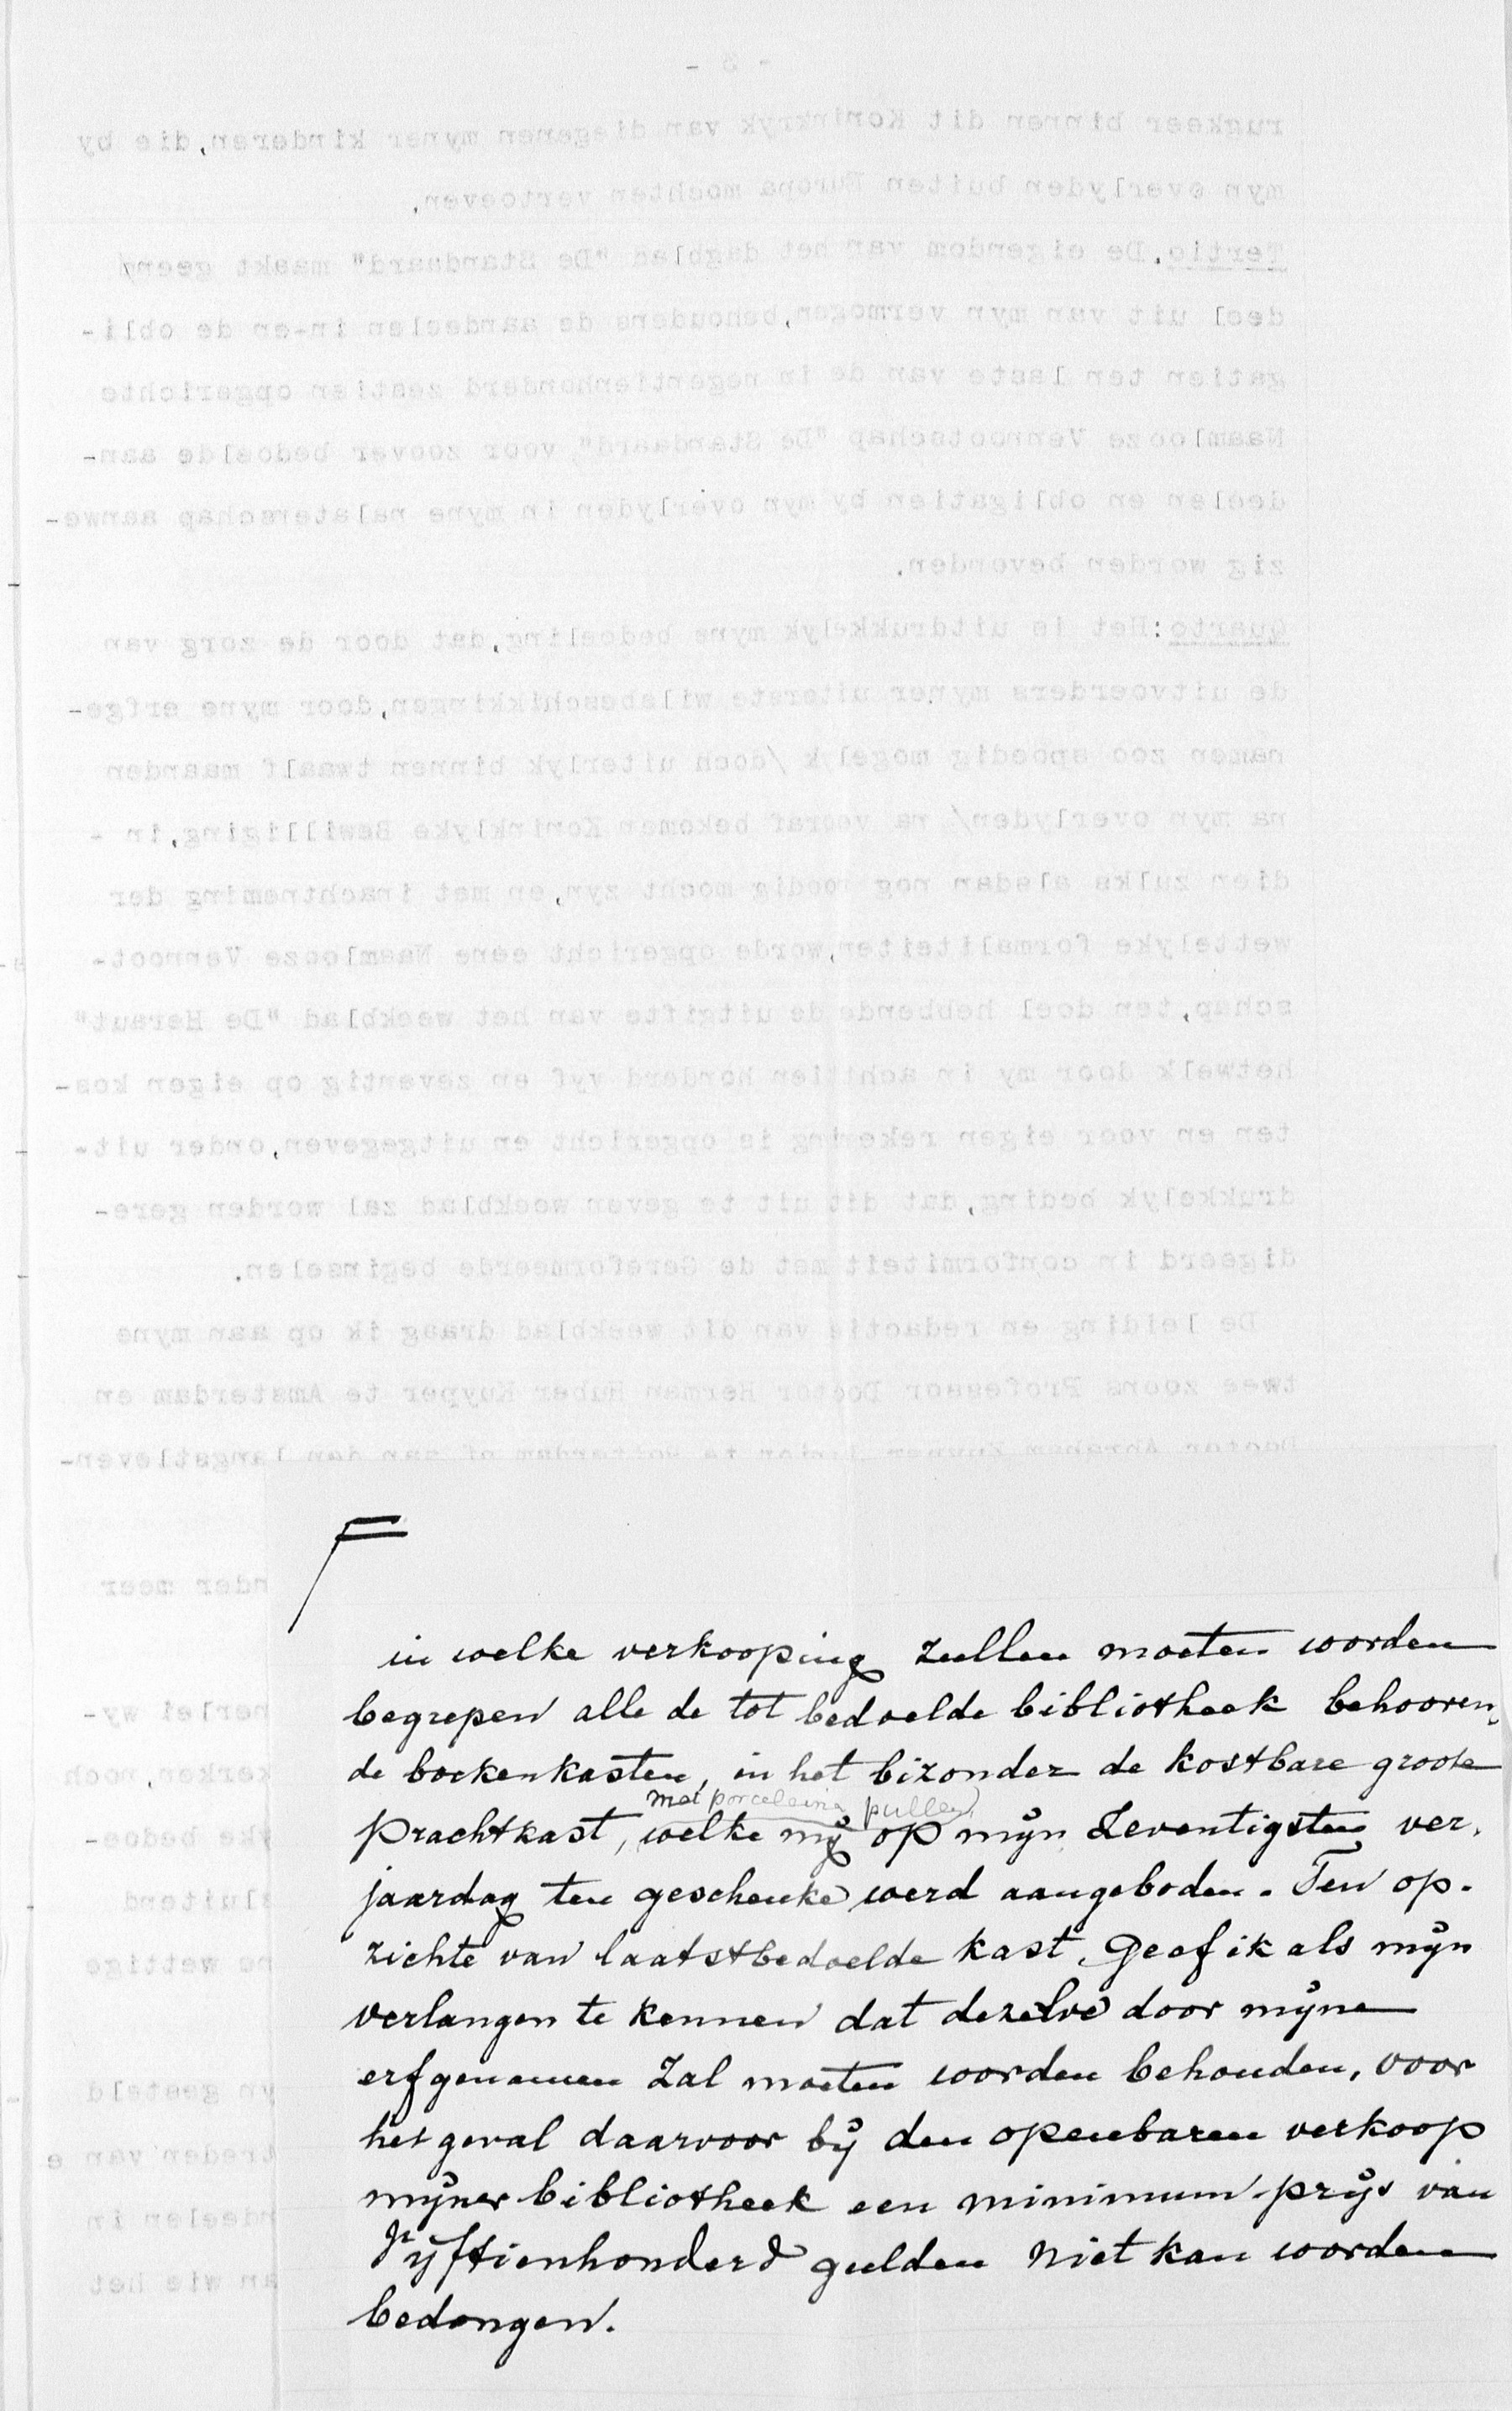 - 3 -
rugkeer binnen dit Koninkryk van diegenen myner kinderen,die by
myn overlyden buiten Europa mochten vertoeven.
Tertio.De eigendom van het dagblad "De Standaard" maakt geen/
deel uit van myn vermogen,behoudens de aandeelen in-en de obli-
gatien ten laste van de in negentienhonderd zestien opgerichte
Naamlooze Vennootschap "De Standaard", voor zoover bedoelde aan-
deelen en obligatien by myn overlyden in myne nalatenschap aanwe-
zig worden bevonden.
Quarto:Het is uitdrukkelyk myne bedoeling,dat door de zorg van
de uitvoerders myner uiterste wilsbeschikkingen,door myne erfge-
namen zoo spoedig mogelyk /doch uiterlyk binnen twaalf maanden
na myn overlyden/ na vooraf bekomen Koninklyke Bewilliging,in -
dien zulks alsdan nog noodig mocht zyn,en met inachtneming der
wettelyke formaliteiten,worde opgericht eene Naamlooze Vennoot-
schap,ten doel hebbende de uitgifte van het weekblad "De Heraut"
hetwelk door my in achttien honderd vyf en zeventig op eigen kos-
ten en voor eigen rekening is opgericht en uitgegeven,onder uit-
drukkelyk beding,dat dit uit te geven weekblad zal worden gere-
digeerd in conformiteit met de Gereformeerde beginselen.
De leiding en redactie van dit weekblad draag ik op aan myne
twee zoons Professor Doctor Herman Huber Kuyper te Amsterdam en
Doctor Abraham Kuyper Junior te Rotterdam of aan den langstleven-
nder meer
nerlei wy-
kerken,noch
yke bedoe-
sluitend
ne wettige
yn gesteld
treden van e
ndeelen in
an wie het
F
in welke verkooping zullen moeten worden
begrepen alle de tot bedoelde bibliotheek behooren,
de boekenkasten, in het bizonder de kostbare groote
met porceleine pullen
prachtkast, welke mÿ op mÿn Zeventigsten ver,
jaardag ten geschenke werd aangeboden. Ten op-
zichte van laatstbedoelde kast, geef ik als mÿn
verlangen te kennen dat dezelve door mÿne
erfgenamen zal moeten worden behouden, voor
het geval daarvoor bÿ den openbaren verkoop
mÿner bibliotheek een minimum-prÿs van
Vÿftienhonderd gulden niet kan worden
bedongen.